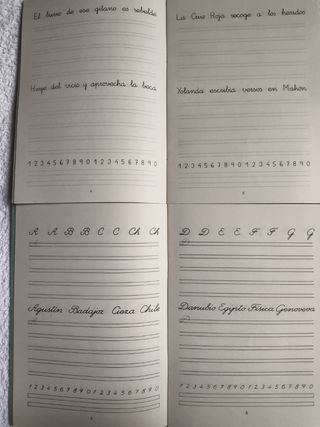 El burro de ese gitano es rebelde
Huye del vicio y aprovecha la beca
1 2 3 4 5 6 7 8 9 0 1 2 3 4 5 6 7 8 9 0
La Cruz Roja recoge a los heridos
Yolanda escribía versos en Mahón
1 2 3 4 5 6 7 8 9 0 1 2 3 4 5 6 7 8 9 0
A A B B C C Ch Ch
Agustín Badajoz Cieza Chile
1 2 3 4 5 6 7 8 9 0 1 2 3 4 5 6 7 8 9 0
D D E E F F G G
Danubio Egipto Física Genoveva
1 2 3 4 5 6 7 8 9 0 1 2 3 4 5 6 7 8 9 0